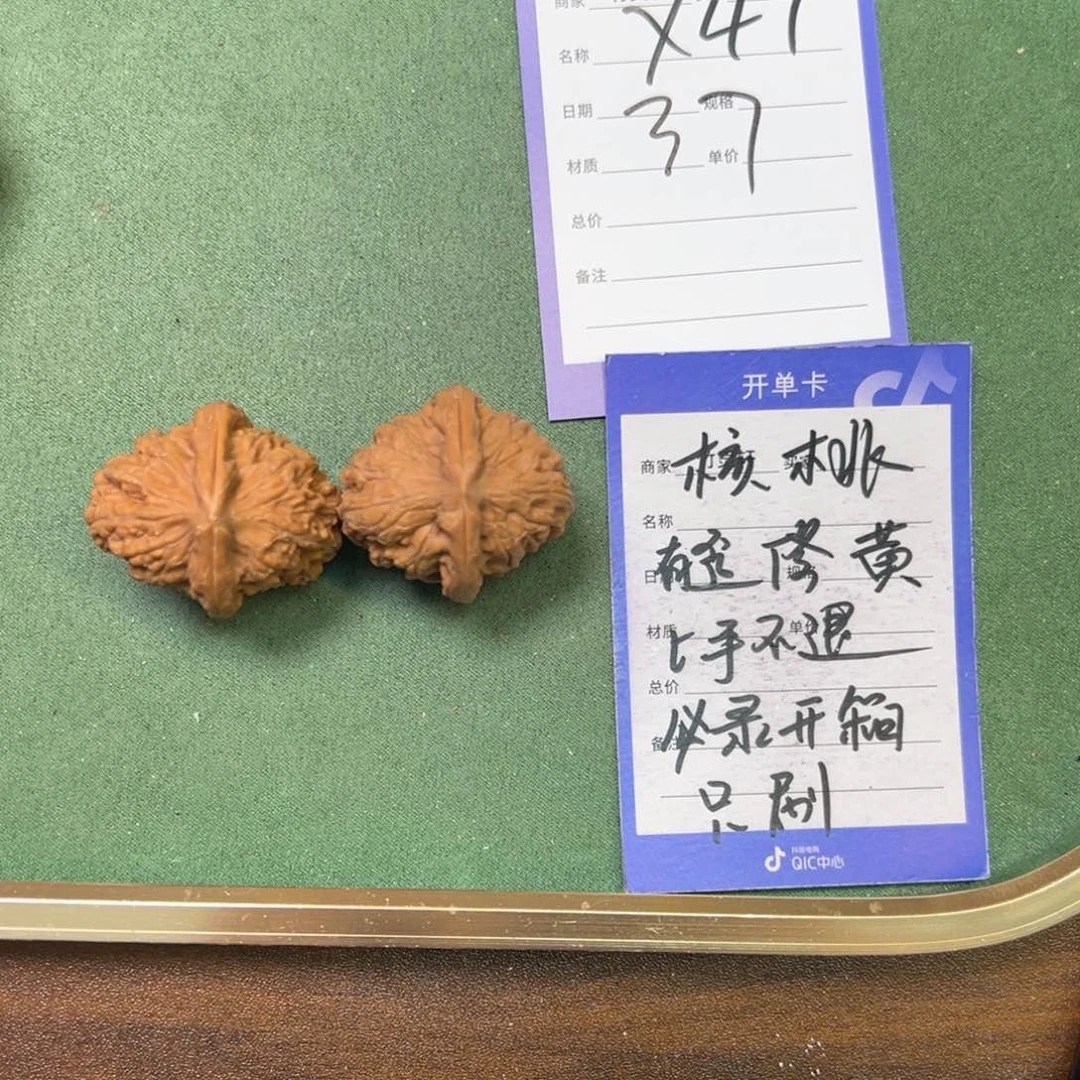 商家
X41
名称
37
日期
规格
材质
单价
总价
备注
开单卡
商家
核桃
名称
黄
材质
上手不退
总价
必录开箱
备注
只刷
抖音电商
QIC中心